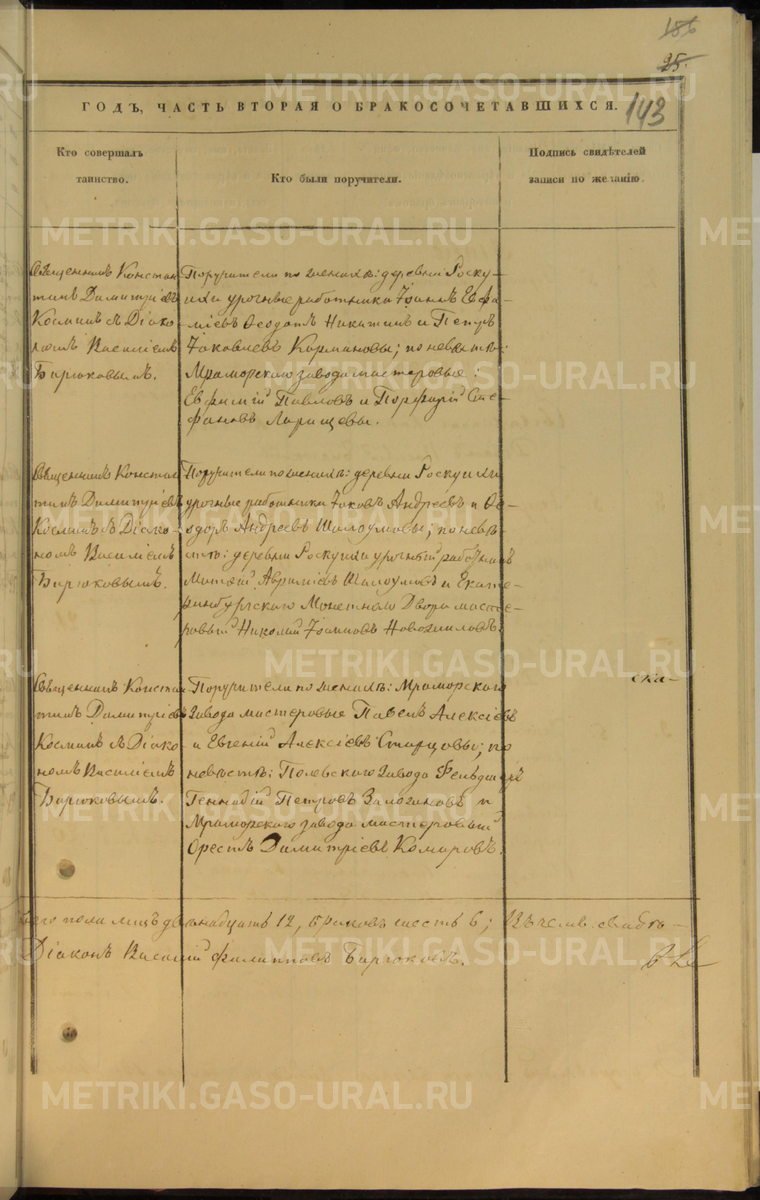 186
25.
143
ГОДЪ, ЧАСТЬ ВТОРАЯ О БРАКОСОЧЕТАВШИХСЯ.
Кто совершалъ
таинство.
Кто были поручители.
Подпись свидѣтелей
записи по желанію.
Священникъ Констан
тинъ Димитріевъ
Космин съ Діако
номъ Василіемъ
Бирюковымъ.
Поручители по женихѣ: деревни Роску-
ихи урочные работники Іоаннъ Евфи-
міевъ Ѳеодотъ Никитинъ и Петръ
Іаковлевъ Кармановы; по невѣстѣ:
Мраморскаго завода мастеровые:
Евфимій Павловъ и Порфирій Сте-
фановъ Ларищевы.
Священникъ Констан
тинъ Димитріевъ
Космин съ Діако-
номъ Василіемъ
Бирюковымъ.
Поручители по женихѣ: деревни Роскуихи
урочные работники Іаковъ Андреевъ и Ѳе-
одоръ Андреевъ Шалоумовы; по невѣ-
стѣ: деревни Роскуихи урочный работникъ
Матвій Аврамієвъ Шалоумовъ и Екате-
ринбургскаго Монетнаго Двора масте-
ровый Николай Іоанновъ
Священникъ Констан
тинъ Димитріевъ
Космин съ Діако
номъ Василіемъ
Бирюковымъ.
Поручители по женихѣ: Мраморскаго
завода мастеровые Павелъ Алексіевъ
и Евгеній Алексіевъ Старцовы; по
невѣстѣ: Полевскаго завода Фельдшеръ
Геннадій Петровъ и
Мраморскаго завода мастеровый
Орестъ Димитріевъ Комаровъ.
пола лицъ двѣнадцать 12, браковъ шесть 6;
Діаконъ Василій Филипповъ Бирюковъ.
METRIKI.GASO-URAL.RU